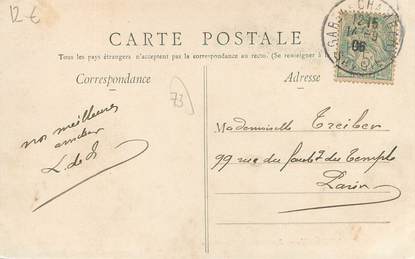 12 €
CARTE POSTALE
Tous les pays étrangers n'acceptent pas la correspondance au recto. (Se renseigner à la
Correspondance
Adresse
73
nos meilleures
amitiés
L. de
Mademoiselle Treiber
99 rue du faub^g du Temple
Paris
12 15
14 -9
06